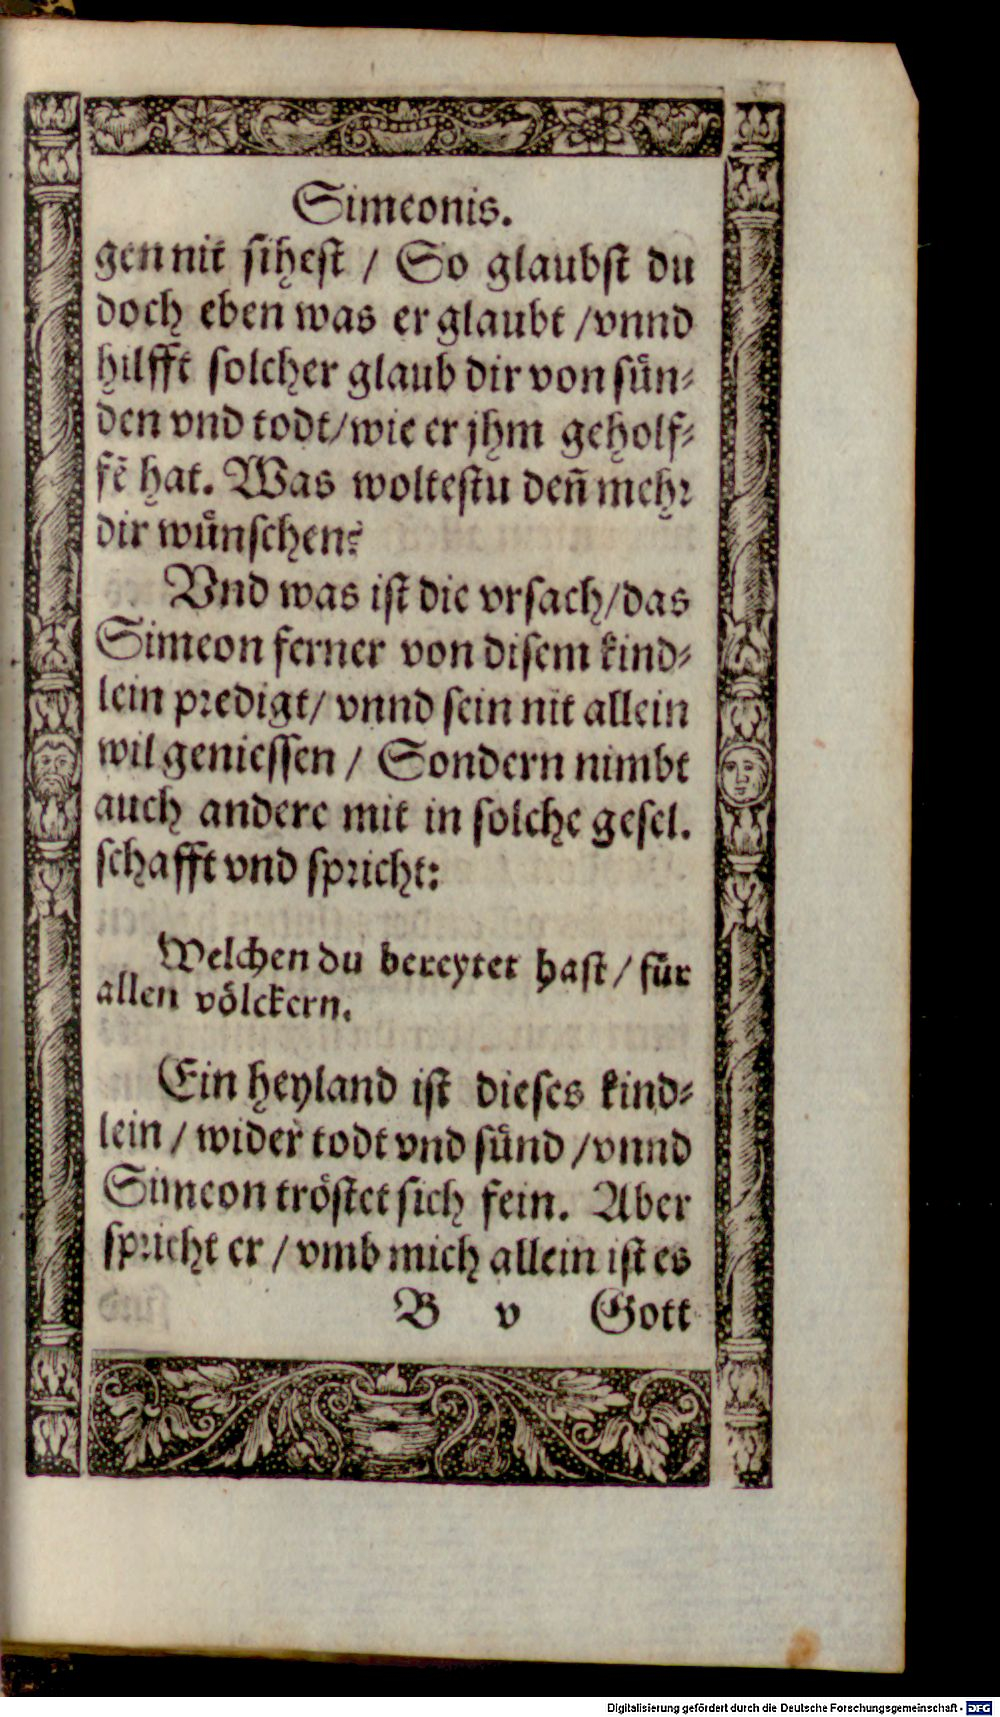 Simeonis.
gen nit sihest / So glaubst du
doch eben was er glaubt / vnnd
hilfft solcher glaub dir von sün-
den vnd todt/ wie er jhm geholf-
fē hat. Was woltestu deñ mehr
dir wünschen?
Vnd was ist die vrsach/ das
Simeon ferner von disem kind-
lein predigt/ vnnd sein nit allein
wil geniessen / Sondern nimbt
auch andere mit in solche gesel.
schafft vnd spricht:
Welchen du bereytet hast / für
allen völckern.
Ein heyland ist dieses kind-
lein / wider todt vnd sünd / vnnd
Simeon tröstet sich fein. Aber
spricht er / vmb mich allein ist es
B v Gott
Digitalisierung gefördert durch die Deutsche Forschungsgemeinschaft - DFG